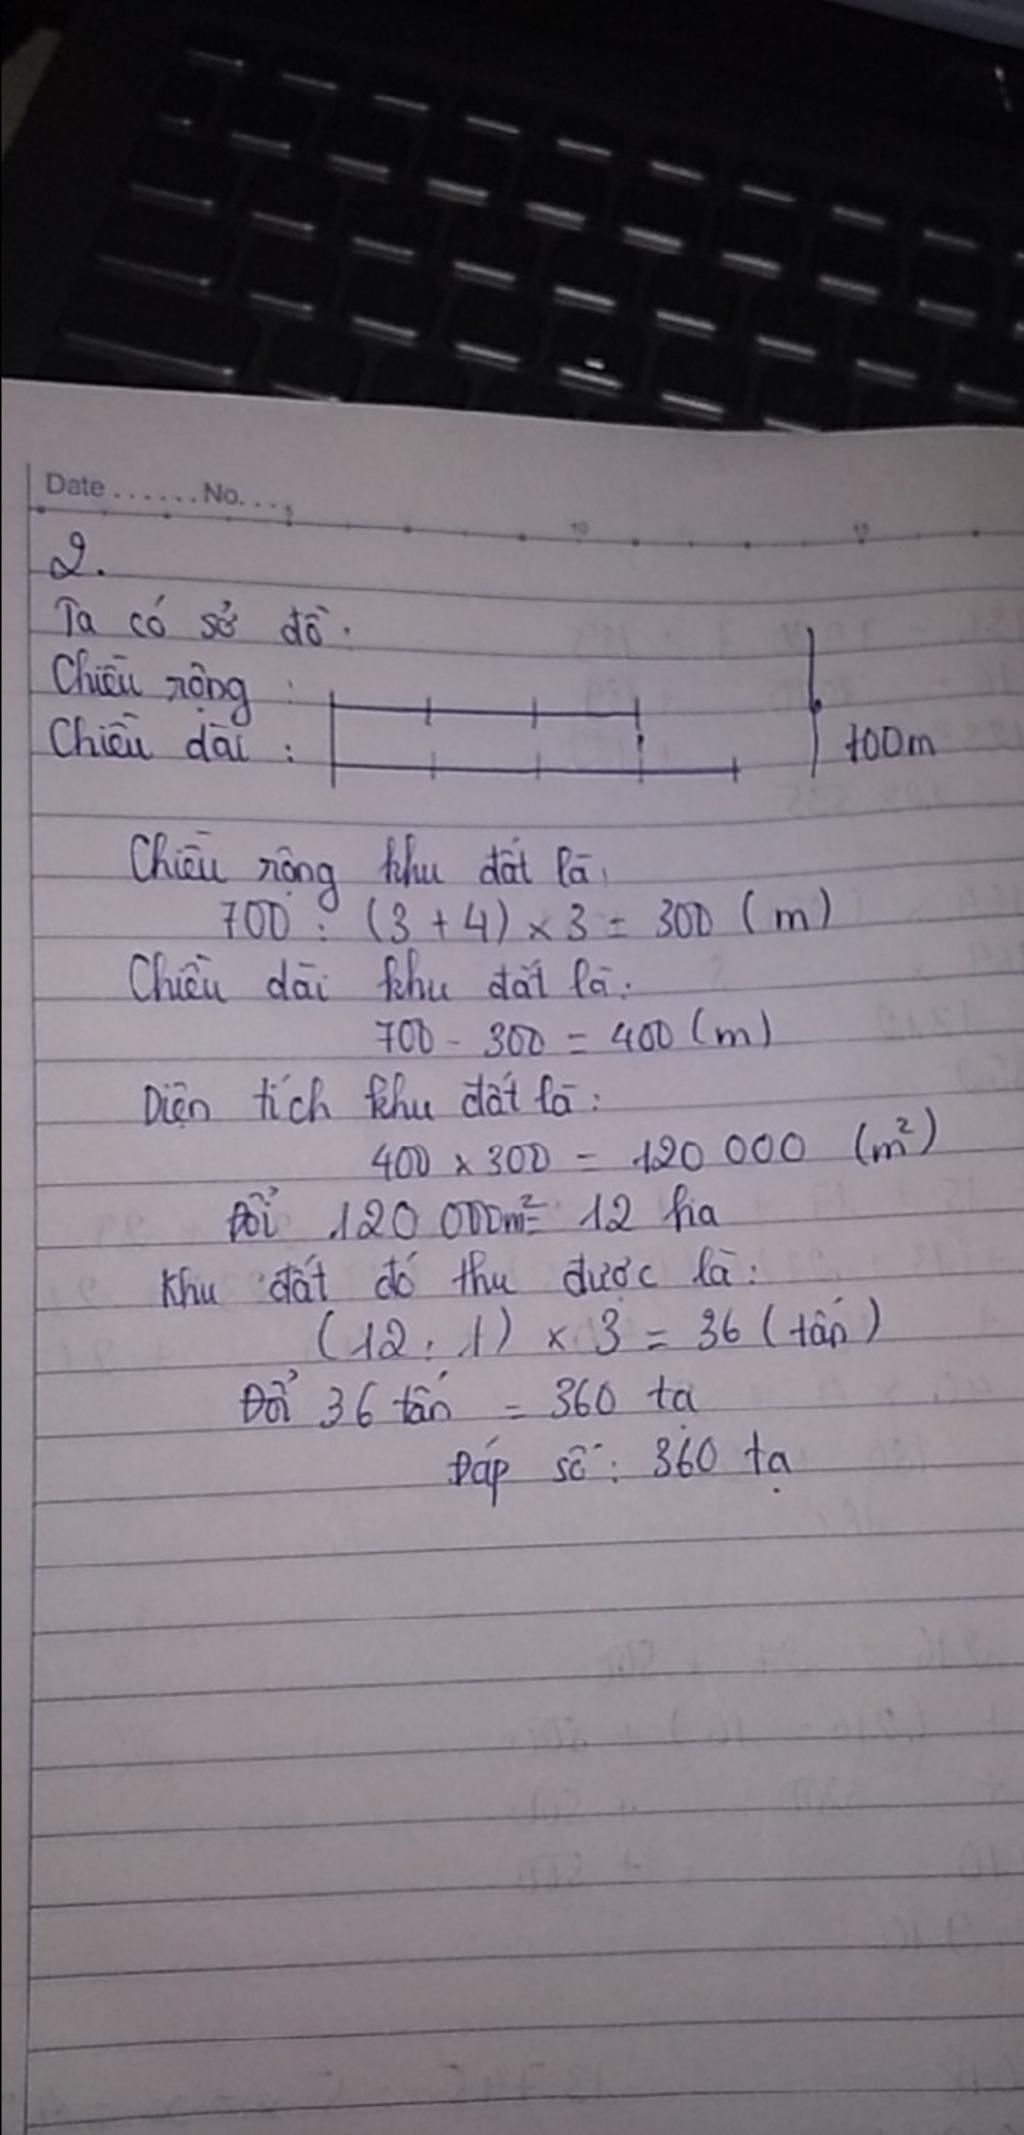 Date ...... No. ...
5 10 15
2.
Ta có sơ đồ:
Chiều rộng :
Chiều dài : 700m
Chiều rộng khu đất là:
700 : (3 + 4) × 3 = 300 (m)
Chiều dài khu đất là:
700 - 300 = 400 (m)
Diện tích khu đất là:
400 × 300 = 120 000 (m²)
Đổi 120 000m² = 12 ha
Khu đất đó thu được là:
(12 : 1) × 3 = 36 (tấn)
Đổi 36 tấn = 360 tạ
Đáp số : 360 tạ